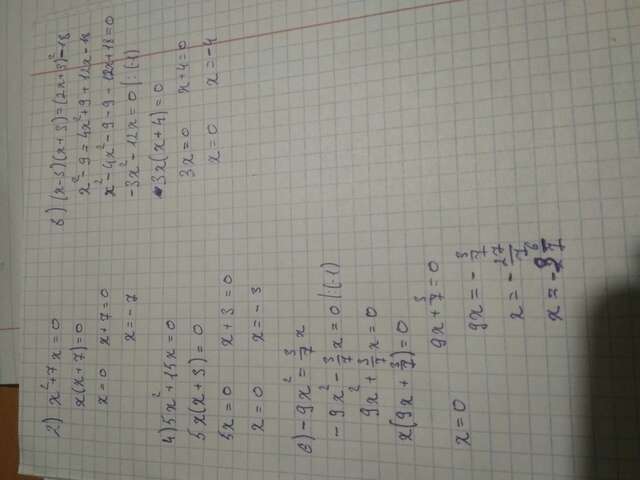 2) x²+7x=0
x(x+7)=0
x=0 x+7=0
x=-7
4) 5x²+15x=0
5x(x+3)=0
5x=0 x+3=0
x=0 x=-3
6) -9x²=3/7x
-9x²-3/7x=0 |:(-1)
9x²+3/7x=0
x(9x+3/7)=0
x=0 9x+3/7=0
9x=-3/7
x=-27/7
8) (x-3)(x+3)=(2x+3)²-18
x²-9=4x²+9+12x-18
x²-4x²-9-9-12x+18=0
-3x²-12x=0 |:(-1)
3x(x+4)=0
3x=0 x+4=0
x=0 x=-4